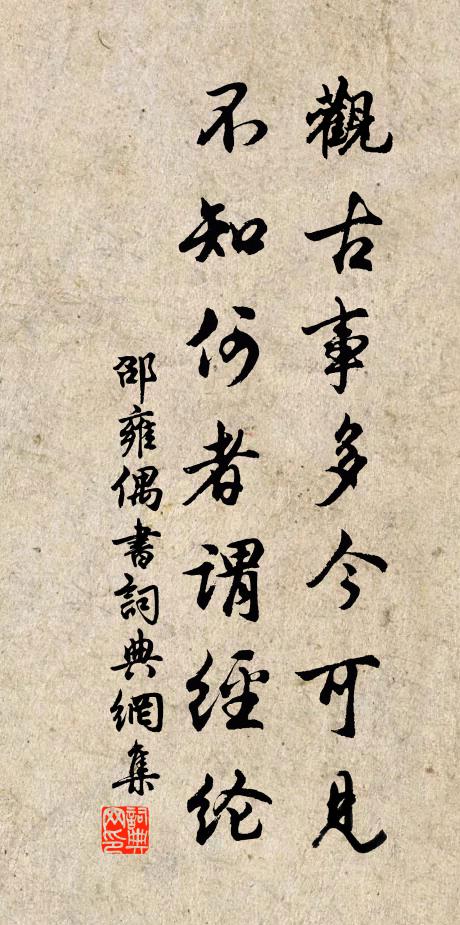 觀古事多今可見
不知何者謂經纶
邵雍偶書詞典網集
詞典
网印